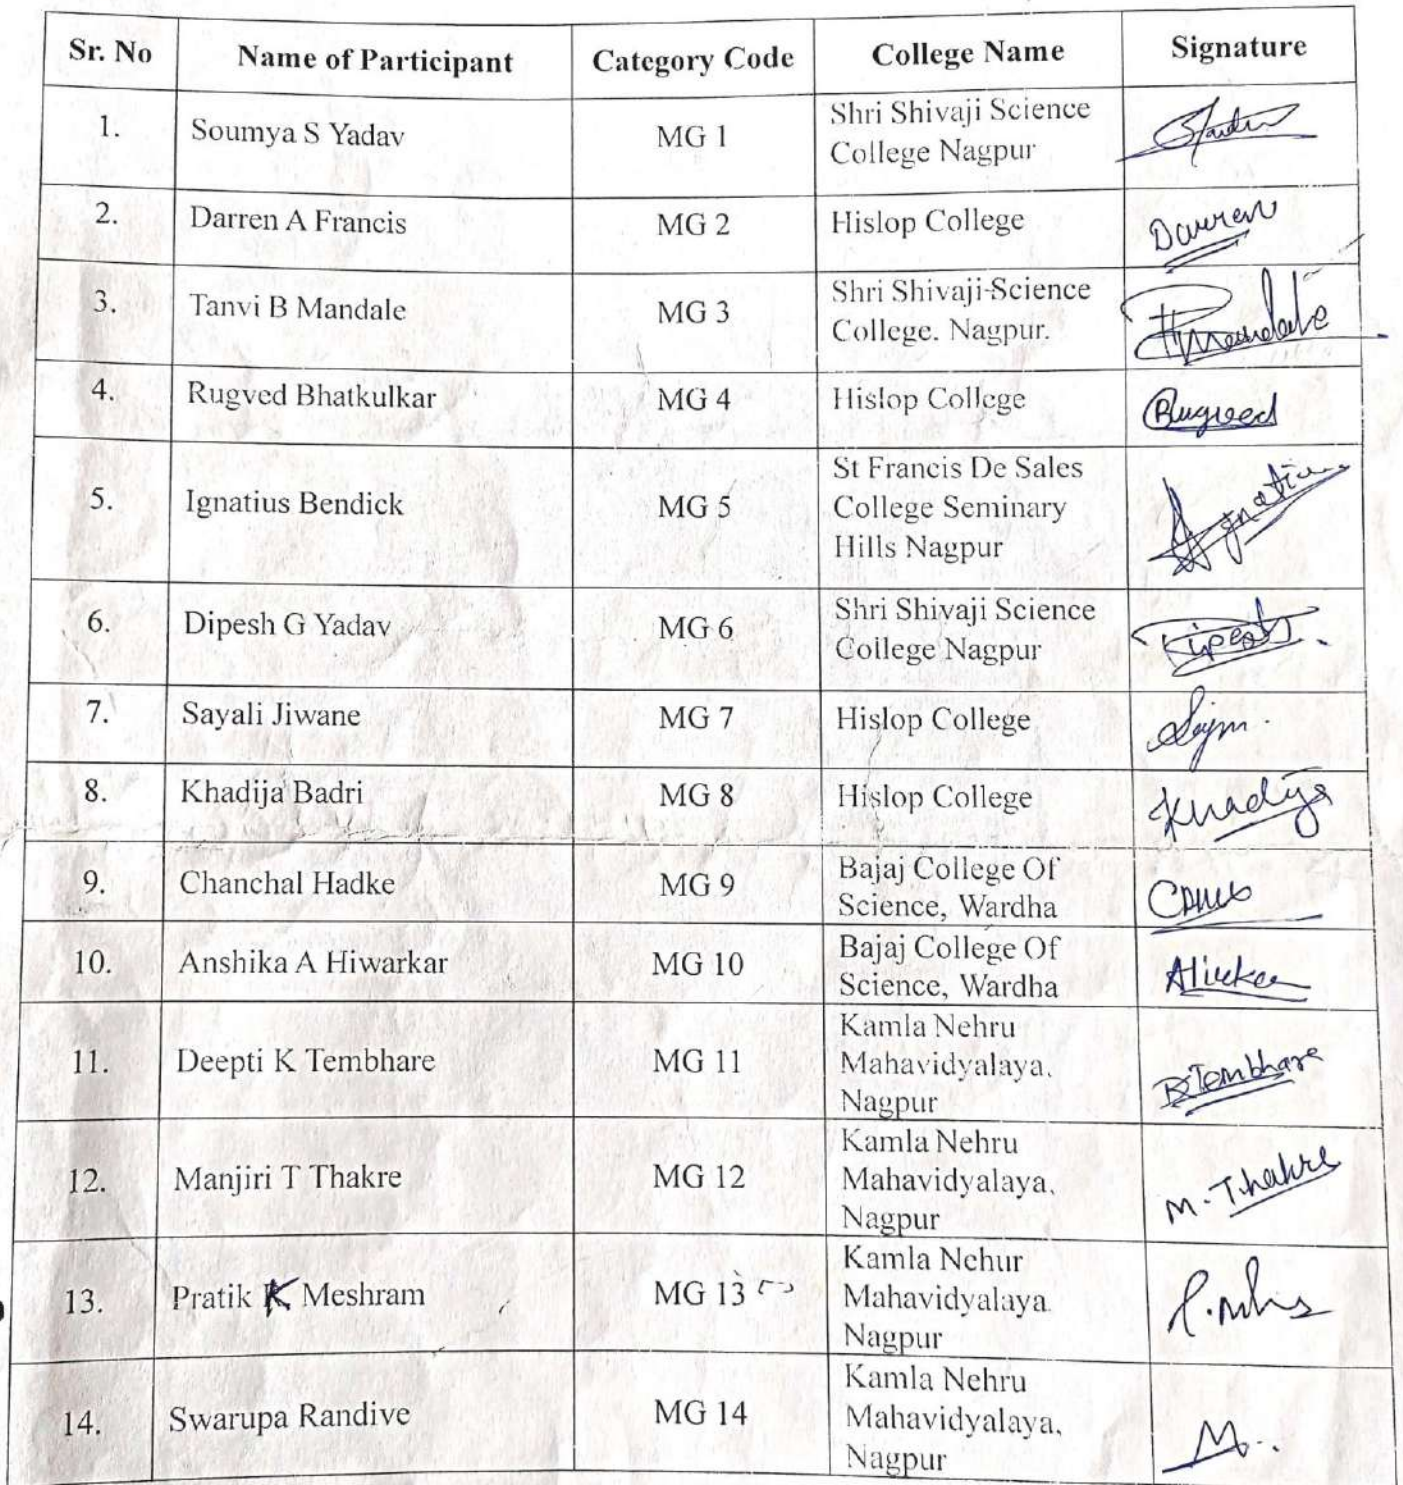 Sr. No Name of Participant Category Code College Name Signature
1. Soumya S Yadav MG 1 Shri Shivaji Science
College Nagpur
2. Darren A Francis MG 2 Hislop College Darren
3. Tanvi B Mandale MG 3 Shri Shivaji Science
College. Nagpur. Mandale
4. Rugved Bhatkulkar MG 4 Hislop College Rugved
5. Ignatius Bendick MG 5 St Francis De Sales
College Seminary
Hills Nagpur
6. Dipesh G Yadav MG 6 Shri Shivaji Science
College Nagpur Dipesh
7. Sayali Jiwane MG 7 Hislop College
8. Khadija Badri MG 8 Hislop College Khadija
9. Chanchal Hadke MG 9 Bajaj College Of
Science, Wardha
10. Anshika A Hiwarkar MG 10 Bajaj College Of
Science, Wardha
11. Deepti K Tembhare MG 11 Kamla Nehru
Mahavidyalaya, Tembhare
Nagpur
12. Manjiri T Thakre MG 12 Kamla Nehru
Mahavidyalaya, M. Thakre
Nagpur
13. Pratik K Meshram MG 13 Kamla Nehur
Mahavidyalaya
Nagpur
14. Swarupa Randive MG 14 Kamla Nehru
Mahavidyalaya,
Nagpur